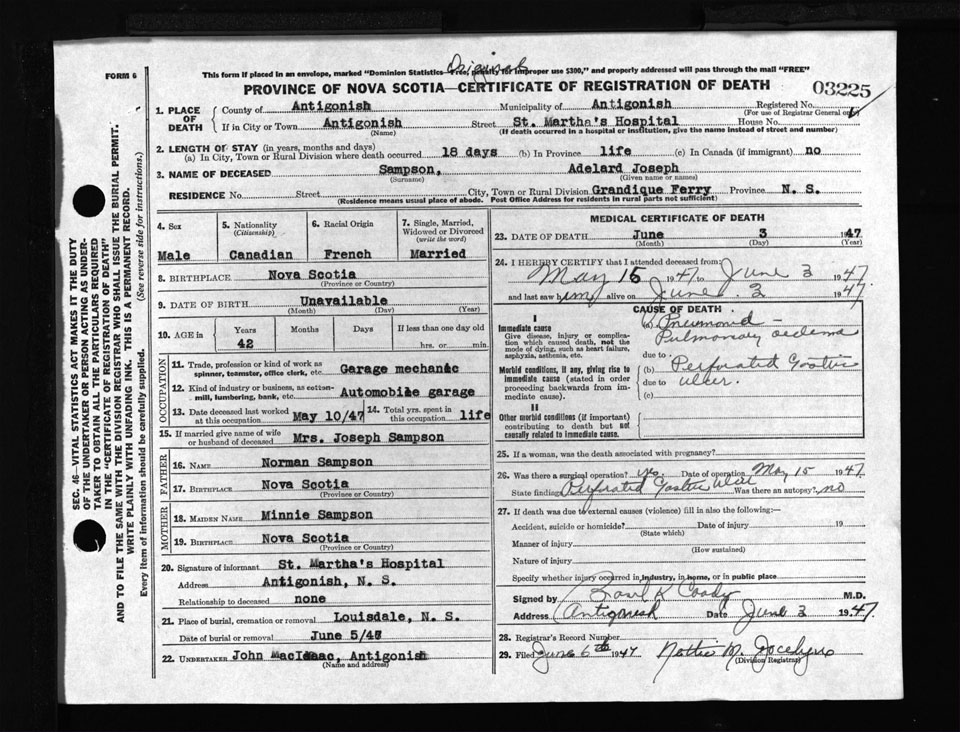 Original
FORM 6
This form if placed in an envelope, marked "Dominion Statistics—Free, penalty for improper use $300," and properly addressed will pass through the mail "FREE"
PROVINCE OF NOVA SCOTIA—CERTIFICATE OF REGISTRATION OF DEATH
03225
1. PLACE OF DEATH { County of Antigonish Municipality of Antigonish Registered No.
(For use of Registrar General only)
If in City or Town Antigonish Street St. Martha's Hospital House No.
(Name) (If death occurred in a hospital or institution, give the name instead of street and number)
2. LENGTH OF STAY (in years, months and days)
(a) In City, Town or Rural Division where death occurred 18 days (b) In Province life (c) In Canada (if immigrant) no
3. NAME OF DECEASED Sampson, Adelard Joseph
(Surname) (Given name or names)
RESIDENCE No. Street City, Town or Rural Division Grandique Ferry Province N. S.
(Residence means usual place of abode. Post Office Address for residents in rural parts not sufficient)
4. Sex 5. Nationality (Citizenship) 6. Racial Origin 7. Single, Married, Widowed or Divorced (write the word)
Male Canadian French Married
8. BIRTHPLACE Nova Scotia
(Province or Country)
9. DATE OF BIRTH Unavailable
(Month) (Day) (Year)
10. AGE in Years Months Days If less than one day old
42 hrs. or min.
OCCUPATION
11. Trade, profession or kind of work as spinner, teamster, office clerk, etc. Garage mechanic
12. Kind of industry or business, as cotton-mill, lumbering, bank, etc. Automobile garage
13. Date deceased last worked at this occupation May 10/47 14. Total yrs. spent in this occupation life
15. If married give name of wife or husband of deceased Mrs. Joseph Sampson
FATHER
16. NAME Norman Sampson
17. BIRTHPLACE Nova Scotia
(Province or Country)
MOTHER
18. MAIDEN NAME Minnie Sampson
19. BIRTHPLACE Nova Scotia
(Province or Country)
20. Signature of informant St. Martha's Hospital
Address Antigonish, N. S.
Relationship to deceased none
21. Place of burial, cremation or removal Louisdale, N. S.
Date of burial or removal June 5/47
22. UNDERTAKER John MacIsaac, Antigonish
(Name and address)
MEDICAL CERTIFICATE OF DEATH
23. DATE OF DEATH June 3 1947
(Month) (Day) (Year)
24. I HEREBY CERTIFY that I attended deceased from:
May 15 1947 to June 3 1947
and last saw him alive on June 3 1947.
CAUSE OF DEATH
I
Immediate cause
Give disease, injury or complication which caused death, not the mode of dying, such as heart failure, asphyxia, asthenia, etc.
(a) Pneumonia –
Pulmonary oedema
due to
Morbid conditions, if any, giving rise to immediate cause (stated in order proceeding backwards from immediate cause).
(b) Perforated Gastric
due to ulcer.
(c)
II
Other morbid conditions (if important) contributing to death but not causally related to immediate cause.
25. If a woman, was the death associated with pregnancy?
26. Was there a surgical operation? yes Date of operation May 15 1947
State findings Perforated Gastric Ulcer Was there an autopsy? no
27. If death was due to external causes (violence) fill in also the following:—
Accident, suicide or homicide? Date of injury 19
(State which)
Manner of injury
(How sustained)
Nature of injury
Specify whether injury occurred in industry, in home, or in public place
Signed by K Coady M.D.
Address Antigonish Date June 3 1947
28. Registrar's Record Number
29. Filed June 6th 1947 Nettie M. Jocelyn
(Division Registrar)
SEC. 46—VITAL STATISTICS ACT MAKES IT THE DUTY
OF THE UNDERTAKER OR PERSON ACTING AS UNDERTAKER
TO OBTAIN ALL THE PARTICULARS REQUIRED
IN THE "CERTIFICATE OF REGISTRATION OF DEATH"
AND TO FILE THE SAME WITH THE DIVISION REGISTRAR WHO SHALL ISSUE THE BURIAL PERMIT.
WRITE PLAINLY WITH UNFADING INK. THIS IS A PERMANENT RECORD.
Every item of information should be carefully supplied. (See reverse side for instructions.)